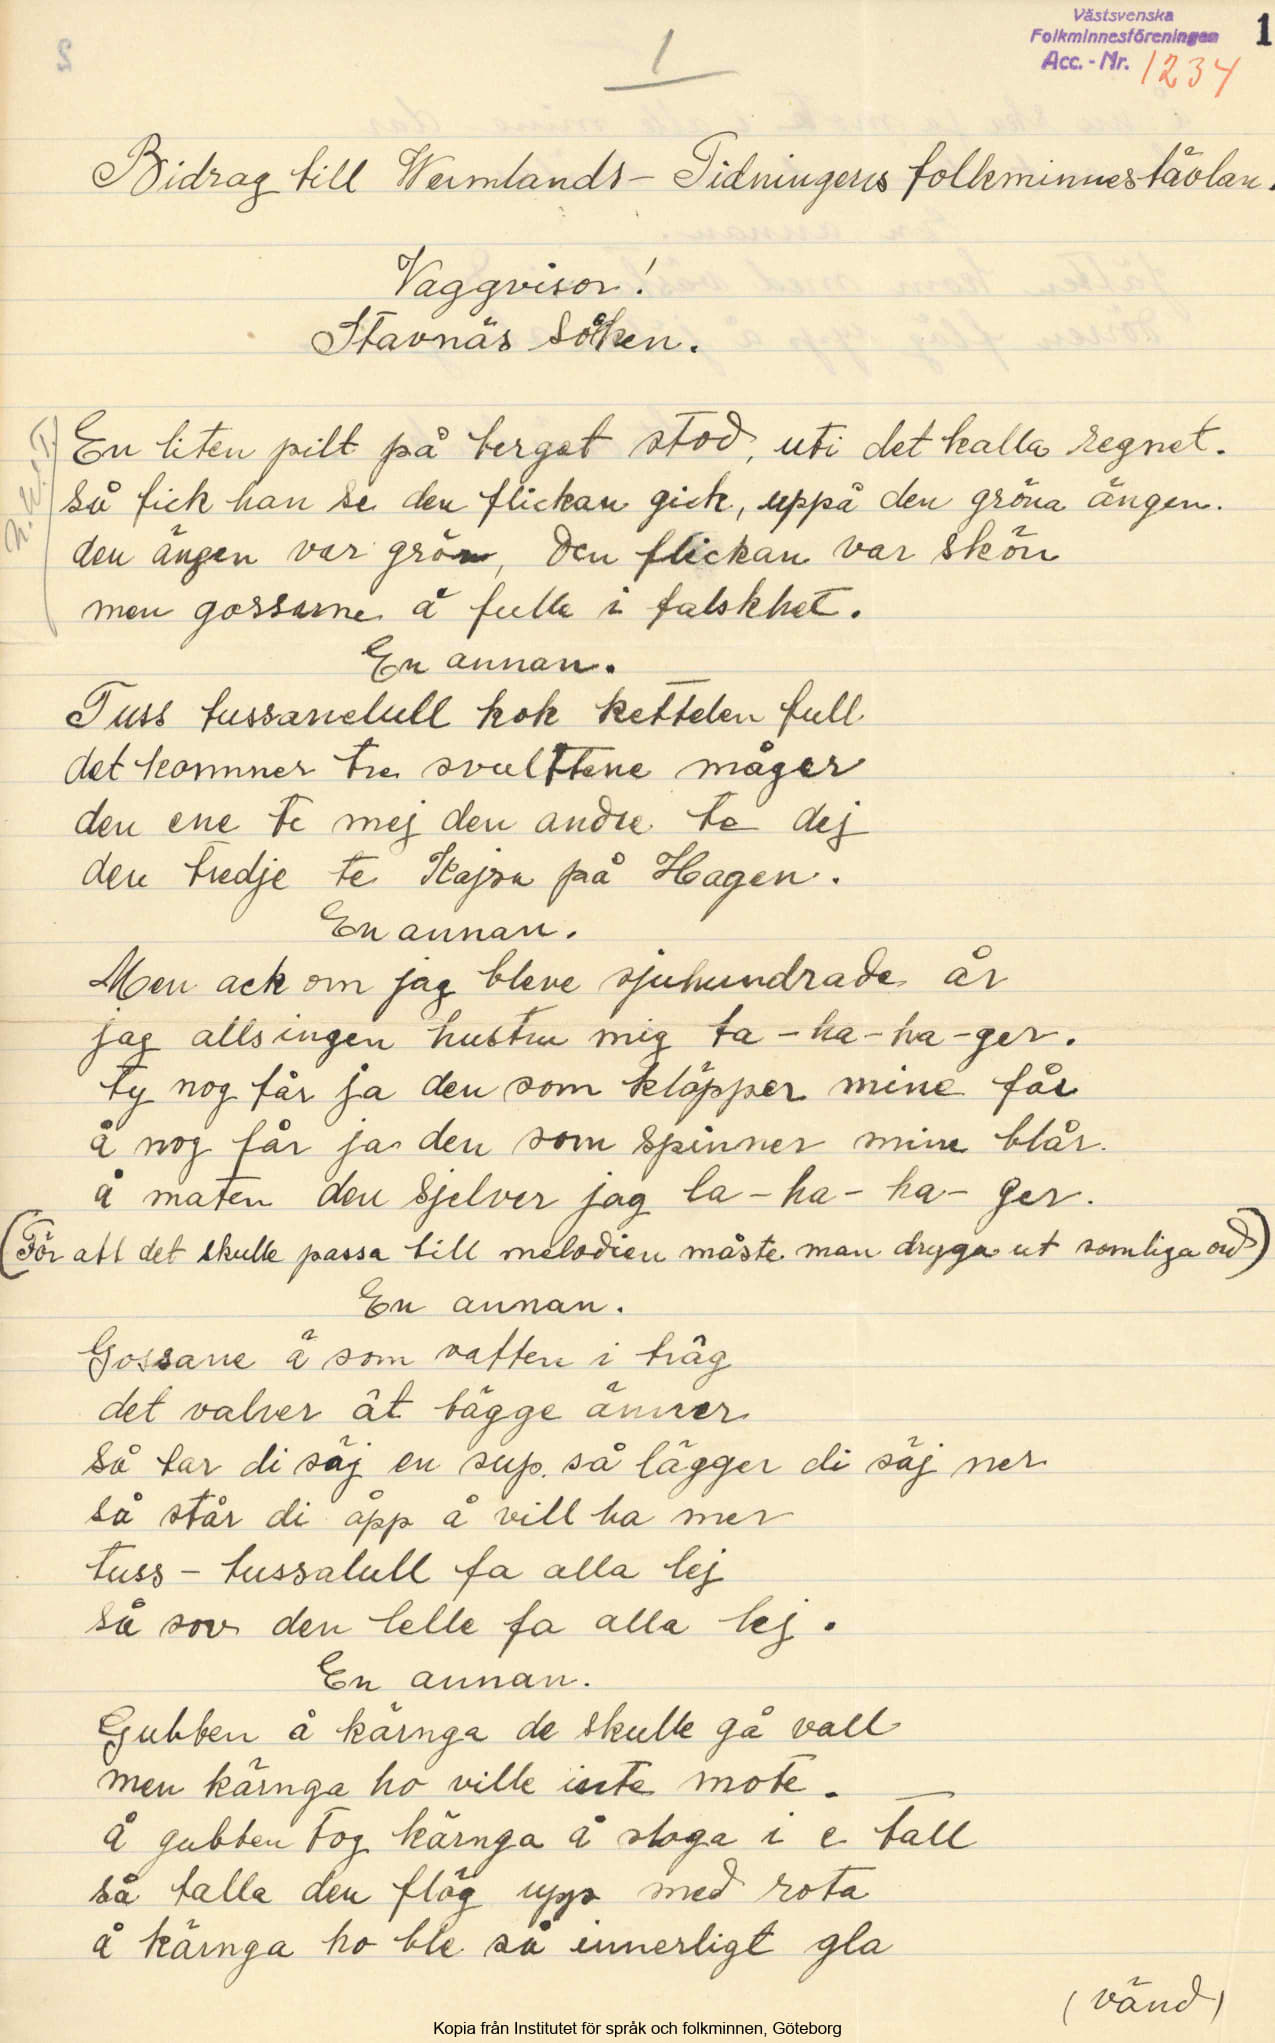 Västsvenska
Folkminnesföreningen
Acc. - Nr. 1234
1
1
Bidrag till Wermlands-Tidningens folkminnestävlan.
Vaggvisor!
Stavnäs Söken.
N.W.T.
En liten pilt på berget stod, uti det kalla regnet.
så fick han se den flickan gick, uppå den gröna ängen.
den ängen var grön, den flickan var skön
men gossarne ä fulle i falskhet.
En annan.
Tuss tussanelull kok kettelen full
det kommer tre svulttene måger
den ene te mej den andre te dej
den tredje te Kajsa på Hagen.
En annan.
Men ack om jag bleve sjuhundrade år
jag allsingen hustru mig ta-ha-ha-ger.
ty nog får ja den som kläpper mine får
å nog får ja den som spinner mine blår.
å maten den sjelver jag la-ha-ha-ger.
(För att det skulle passa till melodien måste man dryga ut somliga ord)
En annan.
Gossane ä som vatten i tråg
det valver åt bägge änner
så tar di säj en sup så lägger di säj ner
så står di åpp å vill ha mer
tuss-tussalull fa alla lej
så sov den lelle fa alla lej.
En annan.
Gubben å kärnga de skulle gå vall
men kärnga ho ville inte mote.
å gubben tog kärnga å sloga i e tall
så talla den flög upp med rota
å kärnga ho ble så innerligt gla
(vänd)
Kopia från Institutet för språk och folkminnen, Göteborg